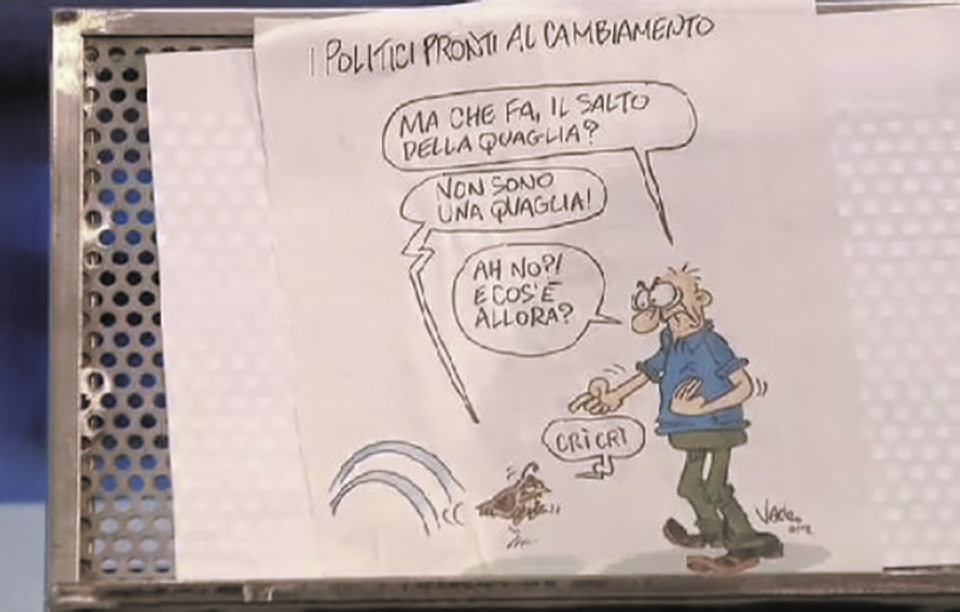 I POLITICI PRONTI AL CAMBIAMENTO
MA CHE FA, IL SALTO
DELLA QUAGLIA?
NON SONO
UNA QUAGLIA!
AH NO?!
E COS'È
ALLORA?
CRÌ CRÌ